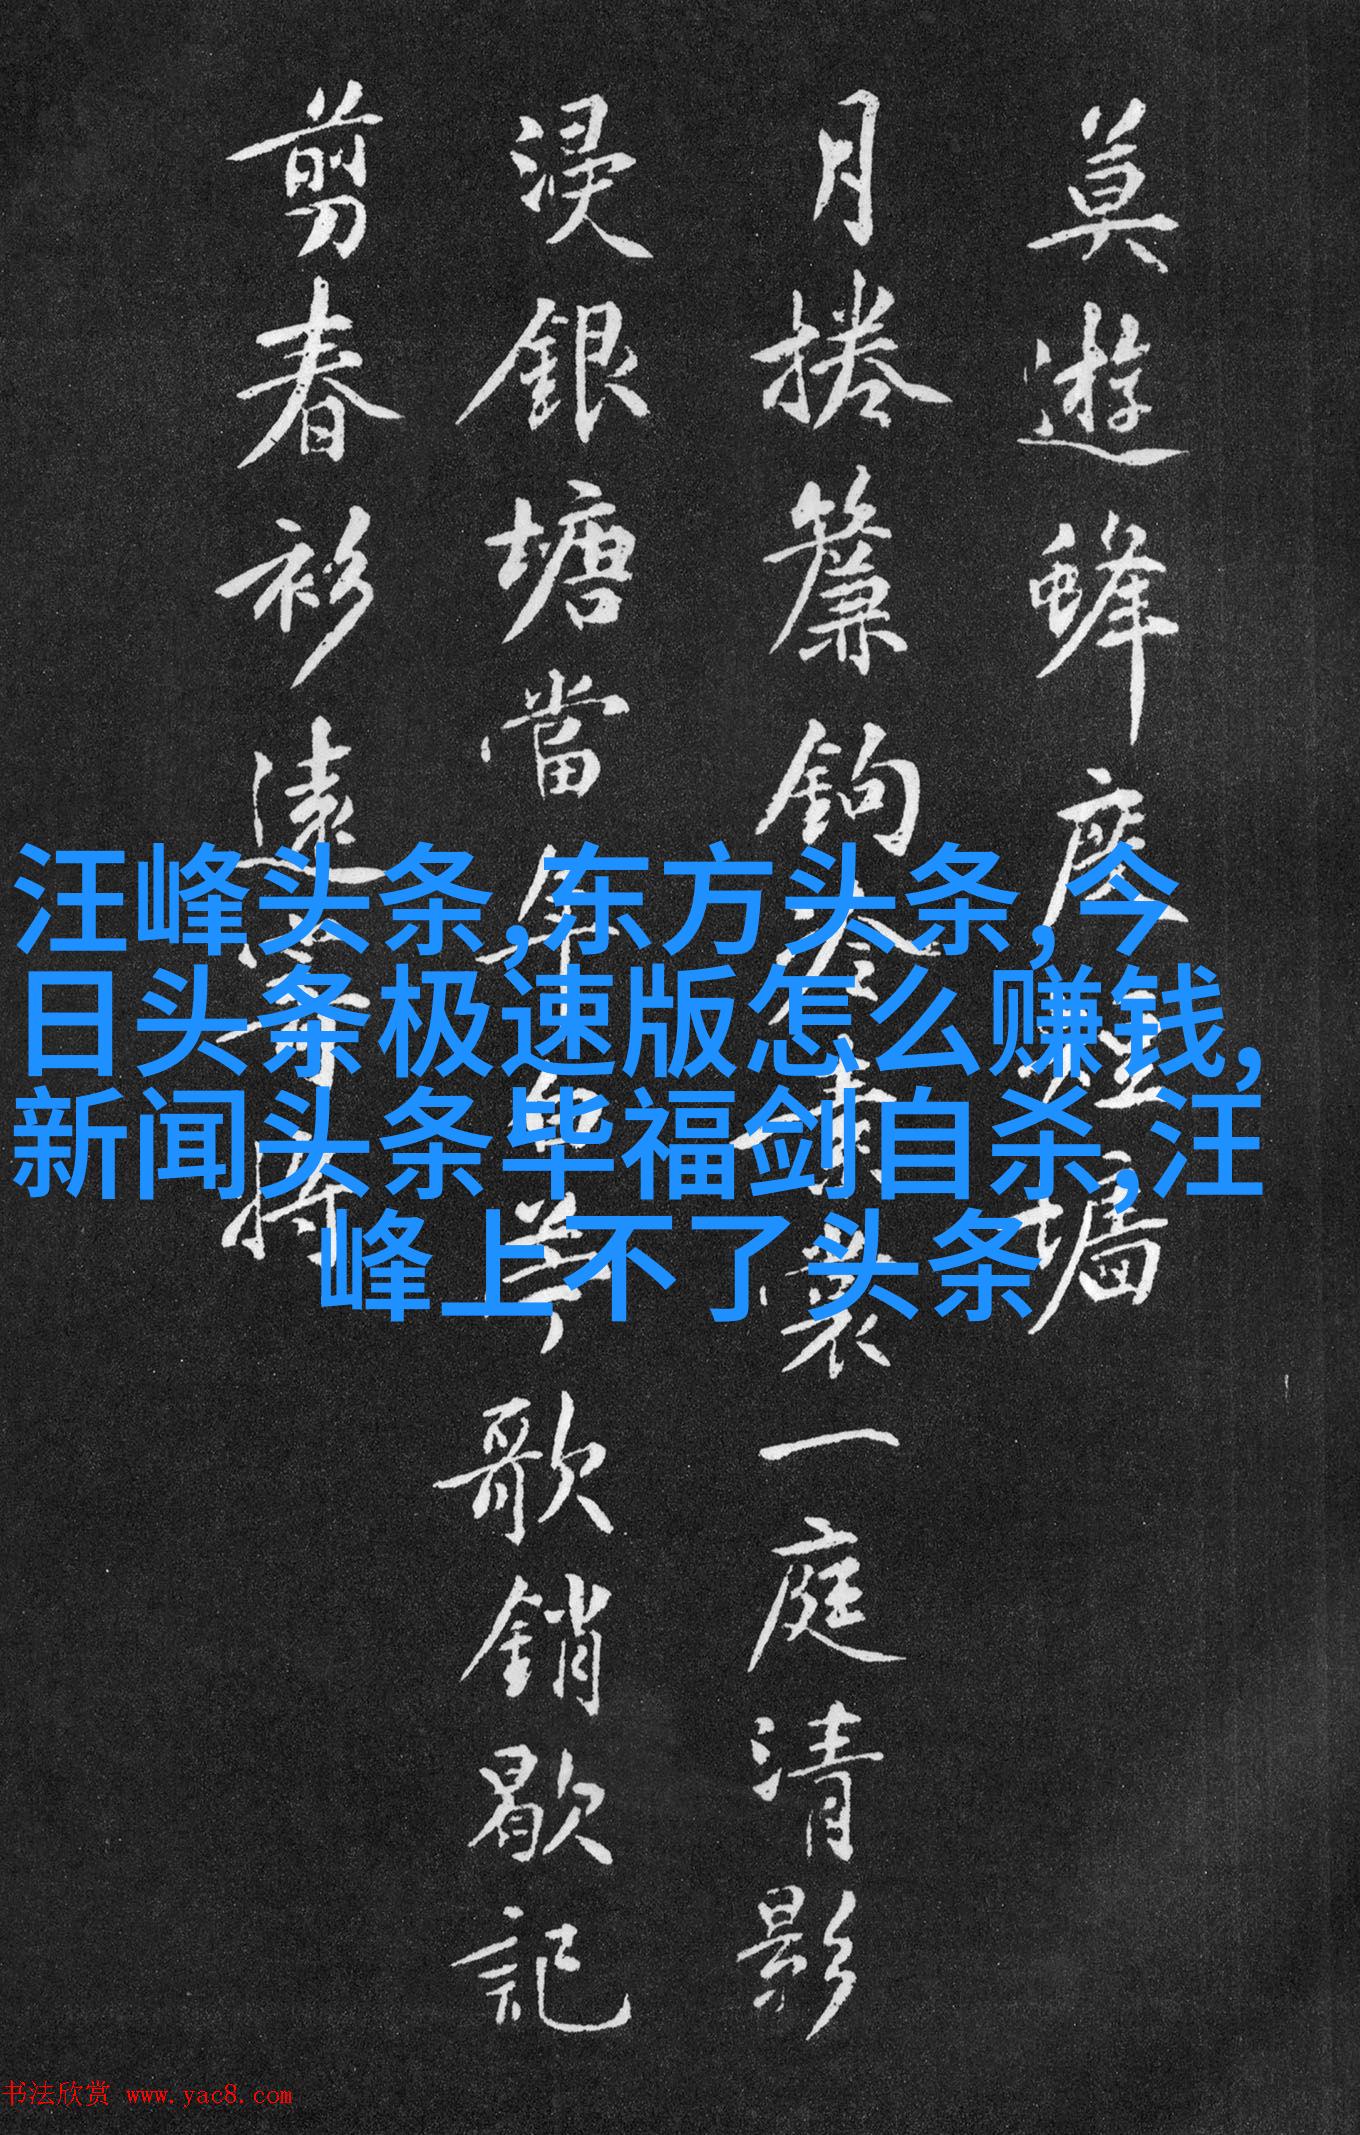 莫遊蜂塵
墙
月捲簾鉤
裳一庭清影
浸銀塘當年
歌銷歇記
剪春衫遠
汪峰头条,东方头条,今
日头条极速版怎么赚钱,
新闻头条毕福剑自杀,汪
峰上不了头条
书法欣赏 www.yac8.com